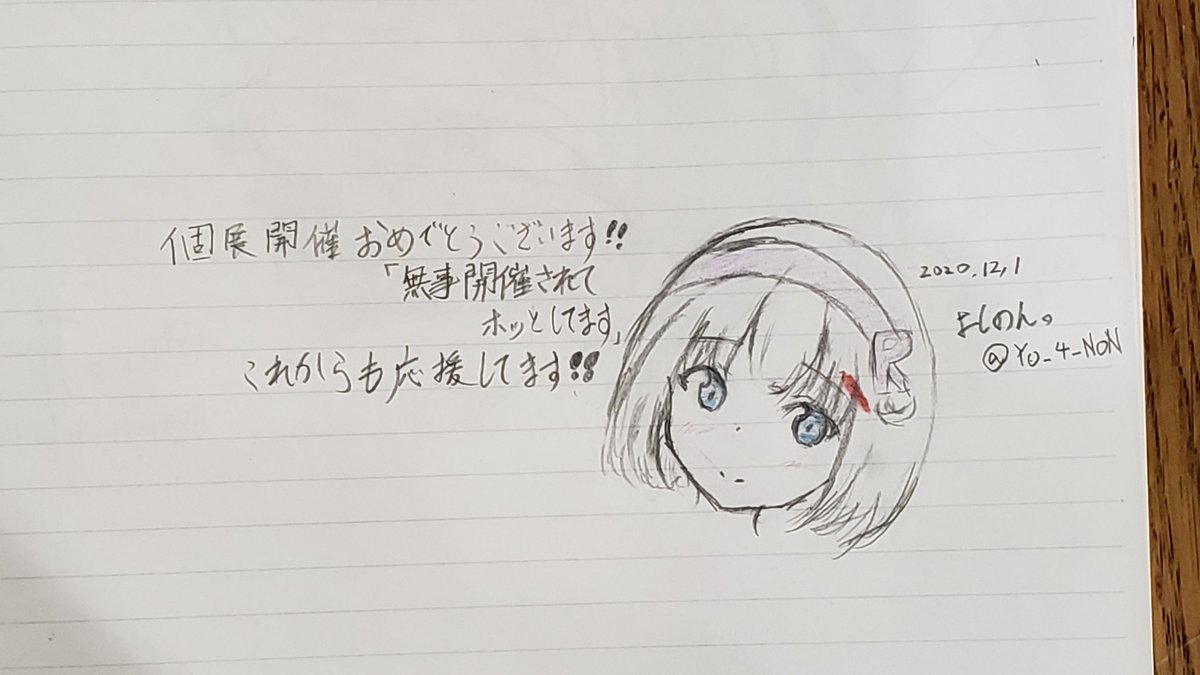 個展開催おめでとうございます!!
「無事開催されて
ホッとしてます」
これからも応援してます!!
2020.12.1
よしのん。
@Yo_4_NoN
R